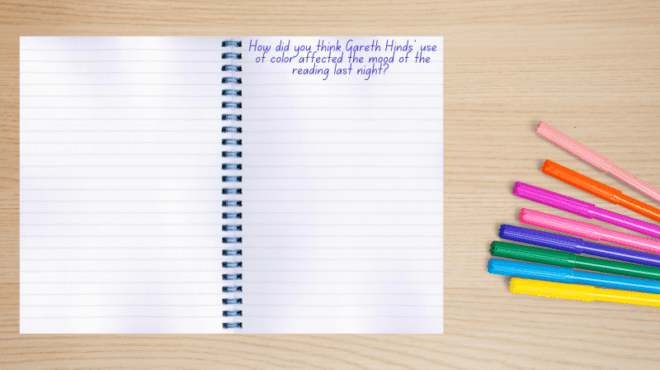 How did you think Gareth Hinds' use
of color affected the mood of the
reading last night?